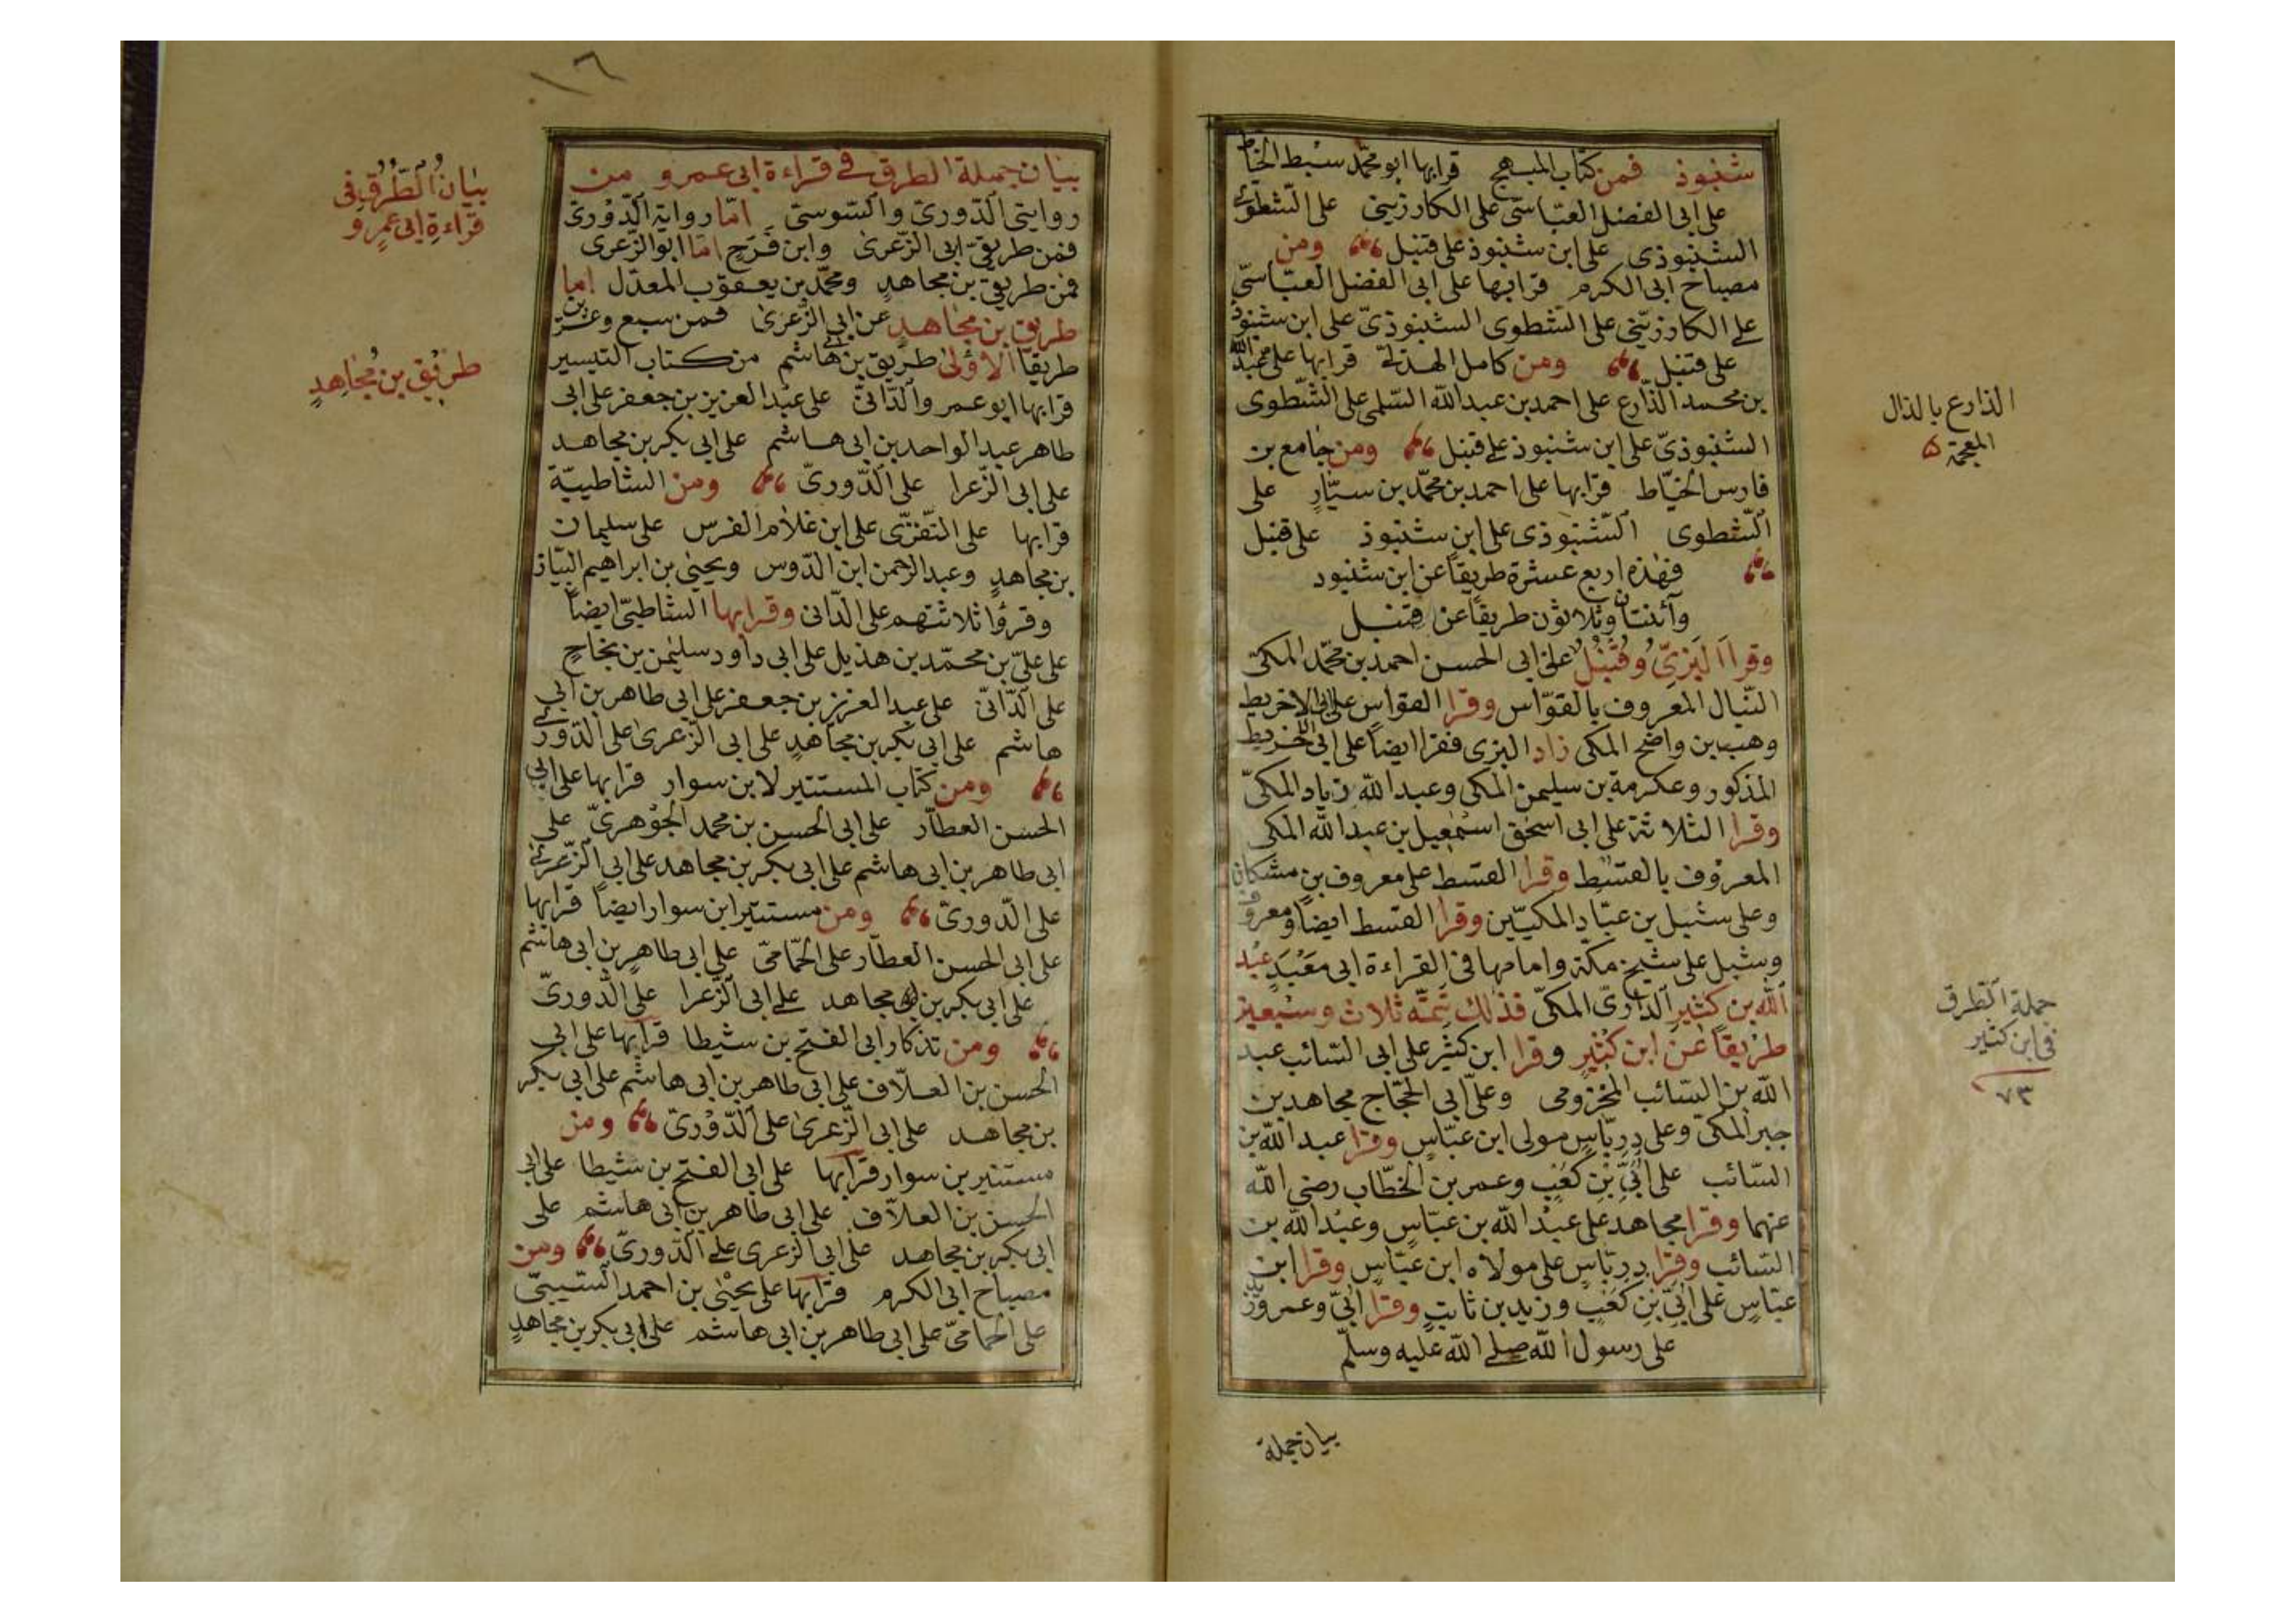 شنبوذ فمن كتاب المبهج قرا بها ابو محمّد سبط الخياط
على ابى الفضل العبّاسّى على الكارزينى على الشطوى
الشنبوذى على ابن شنبوذ على قنبل ومن
مصباح ابى الكرم قرا بها على ابى الفضل العبّاسىّ
على الكارزينى على الشطوى الشنبوذىّ على ابن شنبوذ
على قنبل ومن كامل الهذلىّ قرا بها على عبد الله
بن محمد الذّارع على احمد بن عبد الله السّلمى على الشّطوى
الشنبوذىّ على ابن شنبوذ على قنبل ومن جامع بن
فارس الخيّاط قرا بها على احمد بن محمّد بن سيّارٍ على
الشطوى الشنبوذى على ابن شنبوذ على قنبل
فهٰذه اربع عشرة طريقاً عن ابن شنبود
وآثنتان وثلاثون طريقاً عن قنبل
وقرا البَزىّ وقُنْبُلٌ على ابى الحسن احمد بن محمّد المكىّ
النّبال المعروف بالقوّاس وقرا القواس على ابى الاخريط
وهب بن واضح المكى زاد البزى فقرا ايضاً على ابى الاخريط
المذكور وعكرمة بن سليمن المكى وعبد الله زياد المكىّ
وقرا الثلاثة على ابى اسحٰق اسمٰعيل بن عبد الله المكى
المعروف بالقسط وقرا القسط على معروف بن مشكان
وعلى شبل بن عبّاد المكيّين وقرا القسط ايضاً ومعروف
وشبل على شيخ مكة وامامها فى القراءة ابى مَعْبَدٍ عبْد
الله بن كثيرٍ الدارىّ المكىّ فذٰلك تتمّة ثلاث وسبعين
طريقاً عن ابن كثيرٍ وقرا ابن كثير على ابى السّائب عبد
الله بن السّائب المخزومى وعلى ابى الحجّاج مجاهد بن
جبر المكى وعلى دِرباسٍ مولى ابن عبّاسٍ وقرا عبد الله بن
السّائب على اُبَىّ بْنِ كَعْبٍ وعمر بن الخطّاب رضى الله
عنهما وقرا مجاهد على عبْد الله بن عبّاسٍ وعبْد الله بن
السّائب وقرا دِرباسٍ على مولاه ابن عبّاسٍ وقرا ابن
عبّاسٍ على اُبىّ بْنِ كَعْبٍ وزيد بن ثابتٍ وقرا اُبىّ وعمر وزيد
على رسول الله صلى الله عليه وسلّم
بيان جملة
الذارع بالذال
المعجمة
جملة الطرق
فى ابن كثير
٧٣
١٦
بيان جملة الطرق فى قراءة ابى عمرو من
روايتى الدّورىّ والسّوسىّ امّا رواية الدّورىّ
فمن طريقىّ ابى الزّعرى وابن فَرَحٍ امّا ابو الزّعرى
فمن طريق بن مجاهدٍ ومحمّد بن يعقوب المعدّل اما
طريق بن مجاهدٍ عن ابى الزّعرى فمن سبع وعشرين
طريقاً الاؤلى طريق بن ابى هاشم من كتاب التيسير
قرا بها ابو عمرو الدّانىّ على عبْد العزيز بن جعفر على ابى
طاهر عبد الواحد بن ابى هاشم على ابى بكر بن مجاهد
على ابى الزّعرا على الدّورىّ ومن الشاطبيّة
قرا بها على النّفزّى على ابن غلام الفرس على سليمان
بن مجاهدٍ وعبد الرحمن ابن الدّوس ويحيٰى بن ابراهيم البيّاز
وقرؤا ثلاثتهم على الدّانى وقرا بها الشاطبىّ ايضاً
على علىّ بن محمّد بن هذيل على ابى داود سليمٰن بن نجاحٍ
على الدّانىّ على عبد العزيز بن جعفر على ابى طاهر بن ابى
هاشم على ابى بكر بن مجاهدٍ على ابى الزّعرى على الدّورى
ومن كتاب المستنير لابن سوار قرا بها على ابى
الحسن العطّار على ابى الحسن بن محمد الجوْهرىّ على
ابى طاهر بن ابى هاشم على ابى بكر بن مجاهد على ابى الزّعرى
على الدّورىّ ومن مستنير ابن سوار ايضاً قرا بها
على ابى الحسن العطّار على الحمّامىّ على ابى طاهرٍ بن ابى هاشم
على ابى بكر بن مجاهد على ابى الزّعرا على الدّورىّ
ومن تذكار ابى الفتح بن شيطا قرا بها على ابى
الحسن بن العلّاف على ابى طاهر بن ابى هاشم على ابى بكر
بن مجاهد على ابى الزّعرى على الدّوْرىّ ومن
مستنير بن سوار قرا بها على ابى الفتح بن شيطا على ابى
الحسن بن العلاّف على ابى طاهر بن ابى هاشم على
ابى بكر بن مجاهد على ابى الزعرى على الدّورىّ ومن
مصباح ابى الكرم قرا بها على يحيٰى بن احمد السّيبىّ
على الحمامىّ على ابى طاهر بن ابى هاشم على ابى بكر بن مجاهدٍ
بيانُ الطُّرُقِ فى
قراءةِ ابى عمرٍو
طريق بن مُجاهدٍ